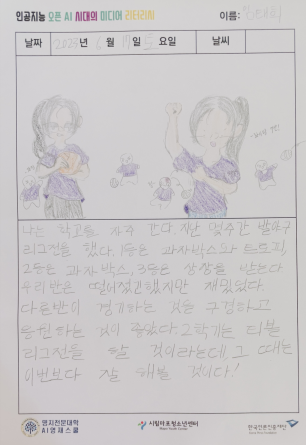 인공지능 오픈 AI 시대의 미디어 리터러시
이름:
날짜 2023년 6월 일 요일 날씨
나는 학교를 자주 간다. 지난 몇주간 발야구
리그전을 했다. 1등은 과자박스와 트로피,
2등은 과자박스, 3등은 상장을 받는다.
우리반은 떨어졌고 했지만 재밌었다.
다른반이 경기하는 것을 구경하고
응원하는 것이 좋았다. 2학기는 티볼
리그전을 할 것이라는데, 그 때는
이번보다 잘 해볼 것이다!
명지전문대학
AI영재스쿨
시립마포청소년센터
Mapo Youth Center
한국언론진흥재단